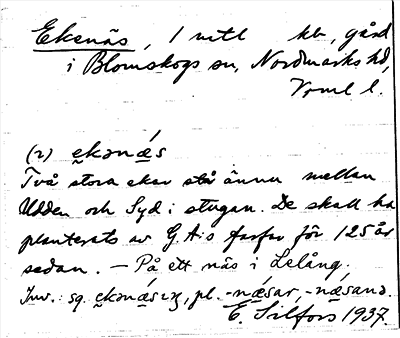 Ekenäs, 1 mtl kb, gård
i Blomskogs sn, Nordmarks hd,
Vrml l.
(2) ekənǽs
Två stora ekar stå ännu mellan
Udden och Syd i stugan. De skall ha
planterats av G. A:s farfar för 125 år
sedan. — På ett näs i Lelång.
Inv.: sg. pl. -næsar, -næsanə.
E. Silfors 1937.